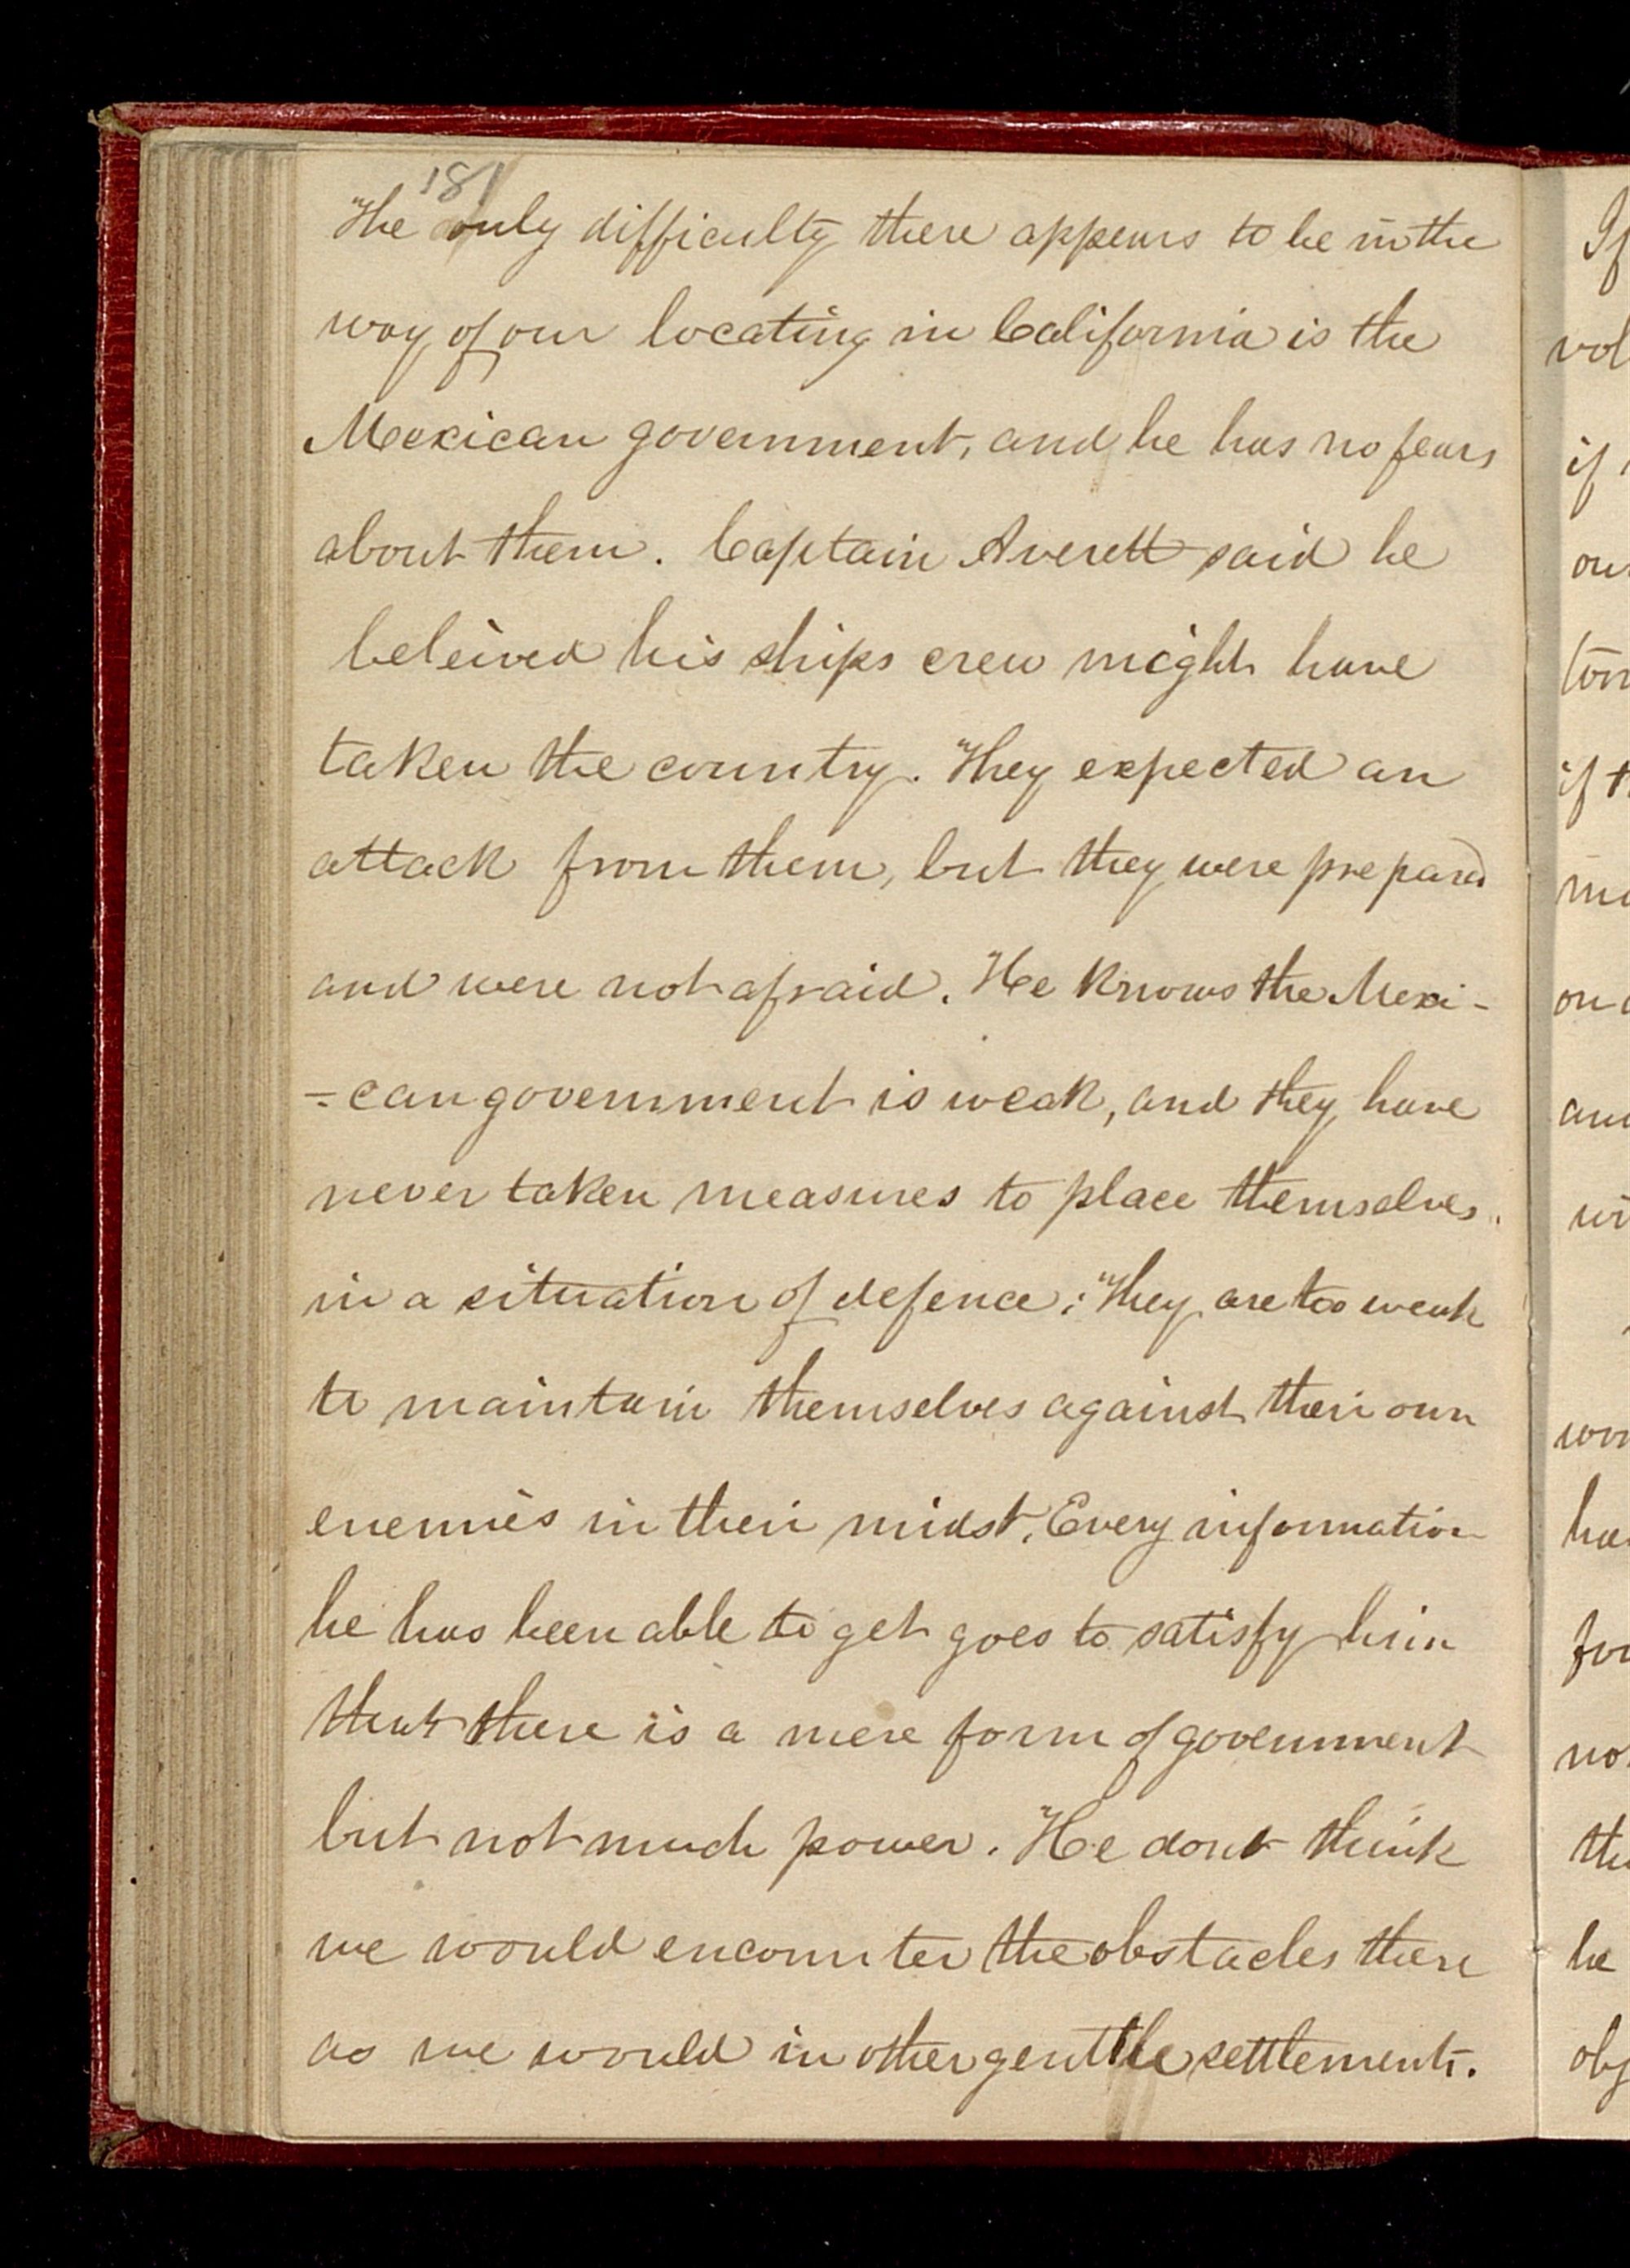 181
The only difficulty there appears to be in the
way of our locating in California is the
Mexican government, and he has no fears
about them. Captain Averett said he
beleived his ships crew might have
taken the country. They expected an
attack from them, but they were prepared
and were not afraid. He knows the Mexi-
=can government is weak, and they have
never taken measures to place themselves
in a situation of defence; They are too weak
to maintain themselves against their own
enemies in their midst. Every information
he has been able to get goes to satisfy him
that there is a mere form of government
but not much power. He dont think
we would encounter the obstacles there
as we would in other gentile settlements.